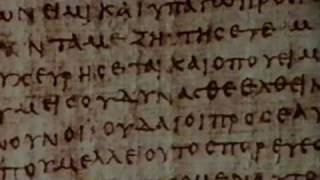 ΩΝΕΙΜΙΚΑΙΥΠΑΓΩΠΡΟϹ
ΝΤΑΜΕ ΖΗΤΗϹΕΤΕ Μ
ΥΧΕΥΡΗϹΕΤΑΙΚΑΙΟΠΟΥΕΙΜ
ΥΜΕΙϹΟΥΔΥΝΑϹΘΕΕΛΘΕΙΝ
ΝΟΥΝΟΙΙΟΥΔΑΙΟΙΠΡΟϹΕΑΥ
ΠΟΥΜΕΛΛΕΙΟΥΤΟϹΠΟΡΕΥΕϹ